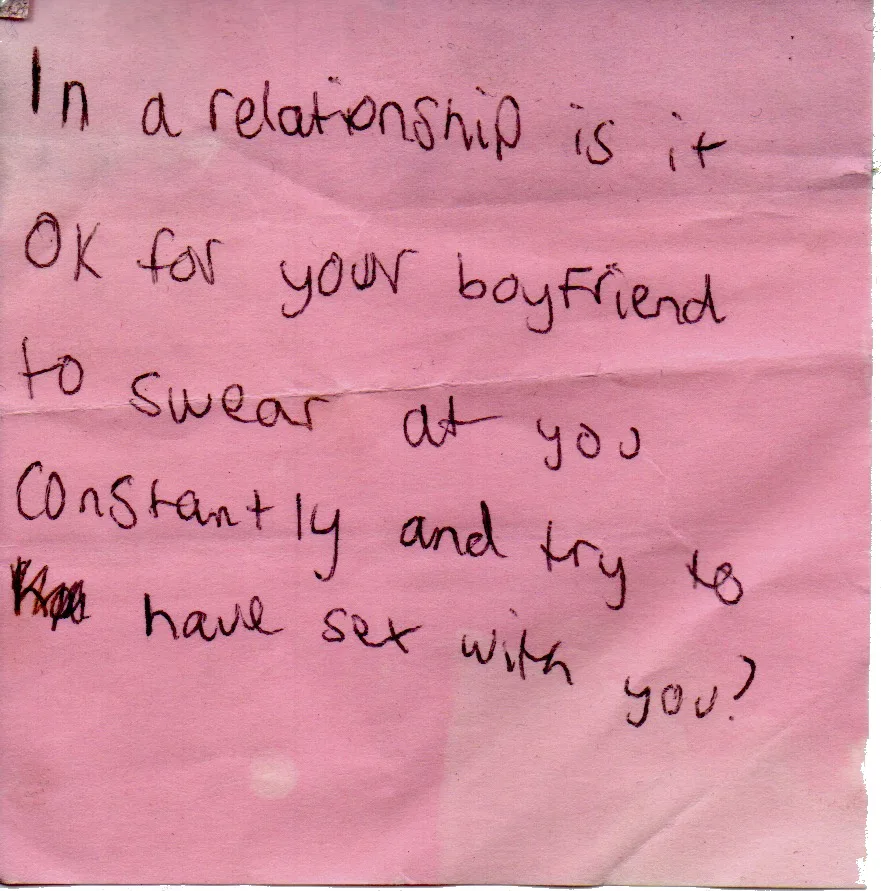 In a relationship is it
OK for your boyfriend
to swear at you
constantly and try to
have sex with you?